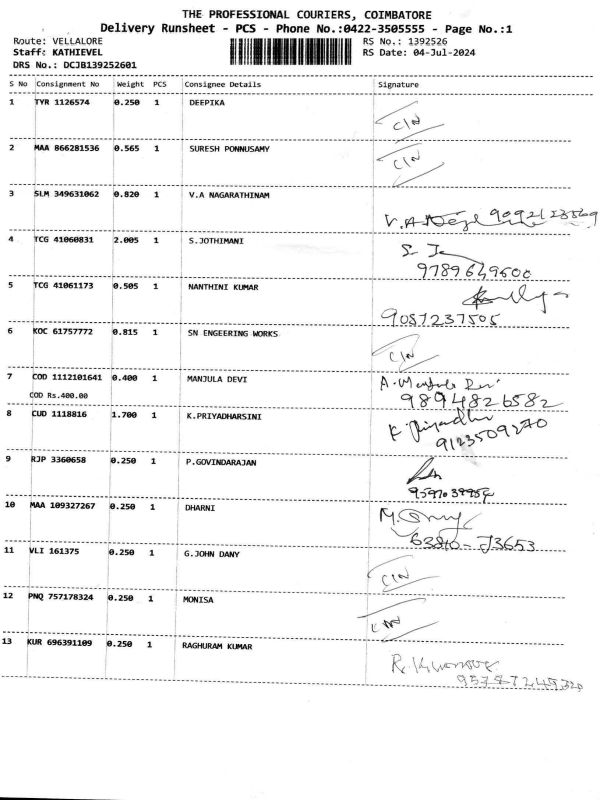 THE PROFESSIONAL COURIERS, COIMBATORE
Delivery Runsheet - PCS - Phone No.:0422-3505555 - Page No.:1
Route: VELLALORE RS No.: 1392526
Staff: KATHIEVEL RS Date: 04-Jul-2024
DRS No.: DCJB139252601
S No Consignment No Weight PCS Consignee Details Signature
1 TYR 1126574 0.250 1 DEEPIKA
C/N
2 MAA 866281536 0.565 1 SURESH PONNUSAMY
C/N
3 SLM 349631062 0.820 1 V.A NAGARATHINAM
V.A
4 TCG 41060831 2.005 1 S.JOTHIMANI
9789649600
5 TCG 41061173 0.505 1 NANTHINI KUMAR
9087237505
6 KOC 61757772 0.815 1 SN ENGEERING WORKS
C/N
7 COD 1112101641 0.400 1 MANJULA DEVI
COD Rs.400.00
9894826582
8 CUD 1118816 1.700 1 K.PRIYADHARSINI
9123509270
9 RJP 3360658 0.250 1 P.GOVINDARAJAN
10 MAA 109327267 0.250 1 DHARNI
11 VLI 161375 0.250 1 G.JOHN DANY
C/N
12 PNQ 757178324 0.250 1 MONISA
13 KUR 696391109 0.250 1 RAGHURAM KUMAR